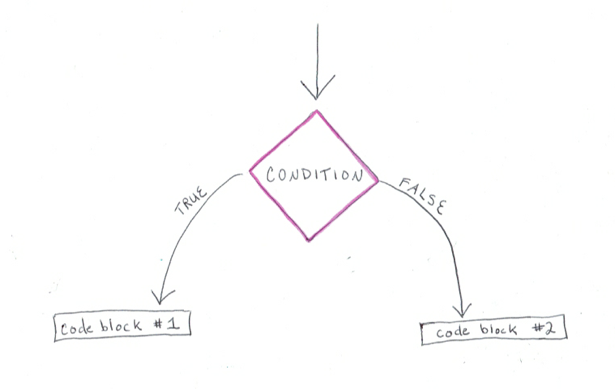 CONDITION
TRUE
FALSE
Code block #1
code block #2